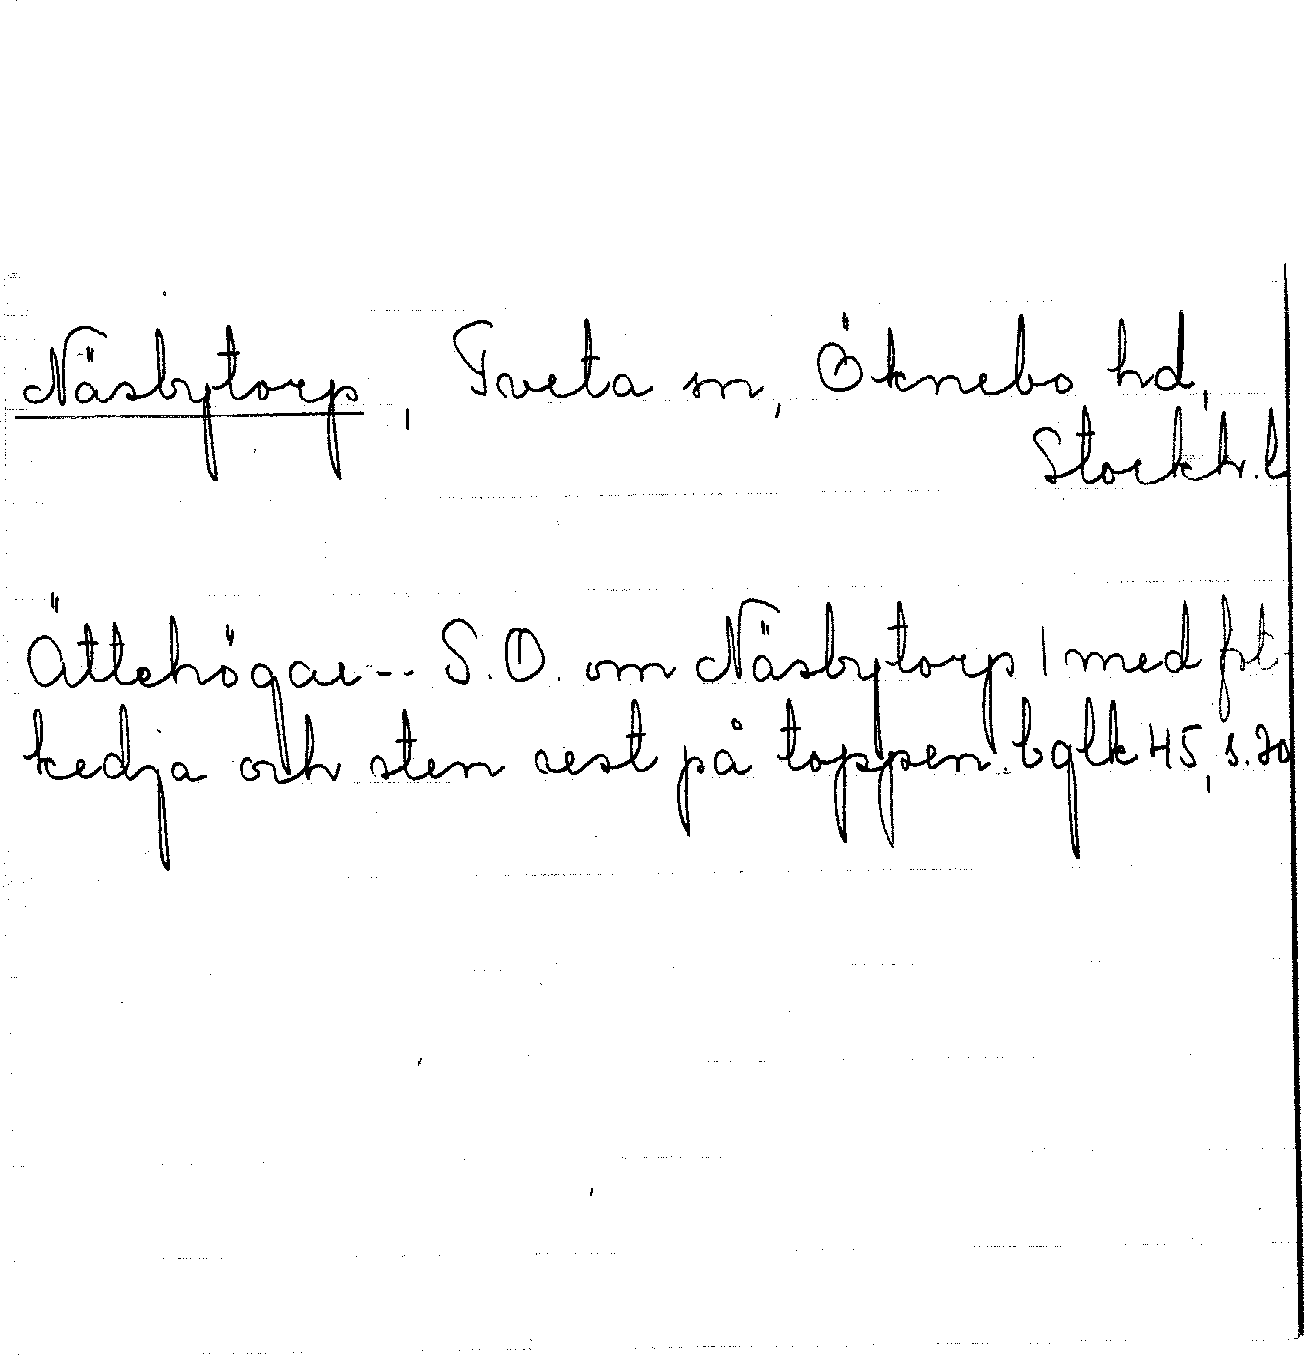 Näsbytorp, Tveta sn, Öknebo hd,
Stockh. l
Ättehögar-- S.O. om Näsbytorp 1 med fot-
kedja och sten rest på toppen. bglk 45, s. 20